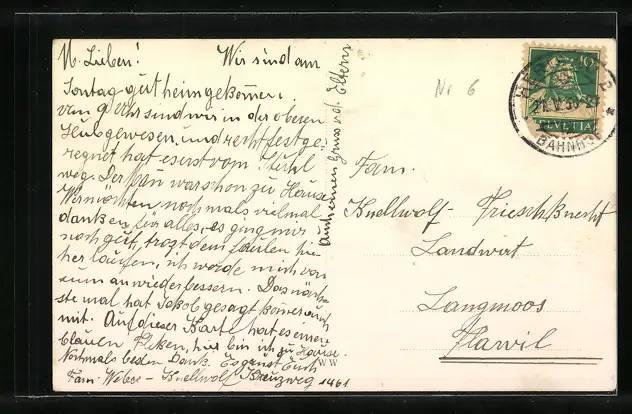 M. Lieben! Wir sind am
Sontag gut heimgekomen.
vom 9 Uhr sind wir in der oberen
Hub gewesen, und recht fest ge-
regnet hat es erst vom Stuhl
weg. Der war schon zu Hause
Wir möchten nochmals vielmal
danken, für alles, es ging mir
noch gut, trozt dem faulen hie-
her laufen, ich werde mich von
nun an wieder bessern. Das näch-
ste mal hat Jakob gesagt kome er auch
mit. Auf dieser Karte hat es einen
blauen Fleken, hier bin ich zu Hause.
Nochmals besten Dank. Es grüsst Euch
Fam. Weber - Knellwolf Kreuzweg 1461
auch einen Gruss v. d. Eltern
Nr 6
Fam.
Knellwolf - Frischknecht
Landwirt
Langmoos
Flawil
10
HELVETIA
BAHNHOF